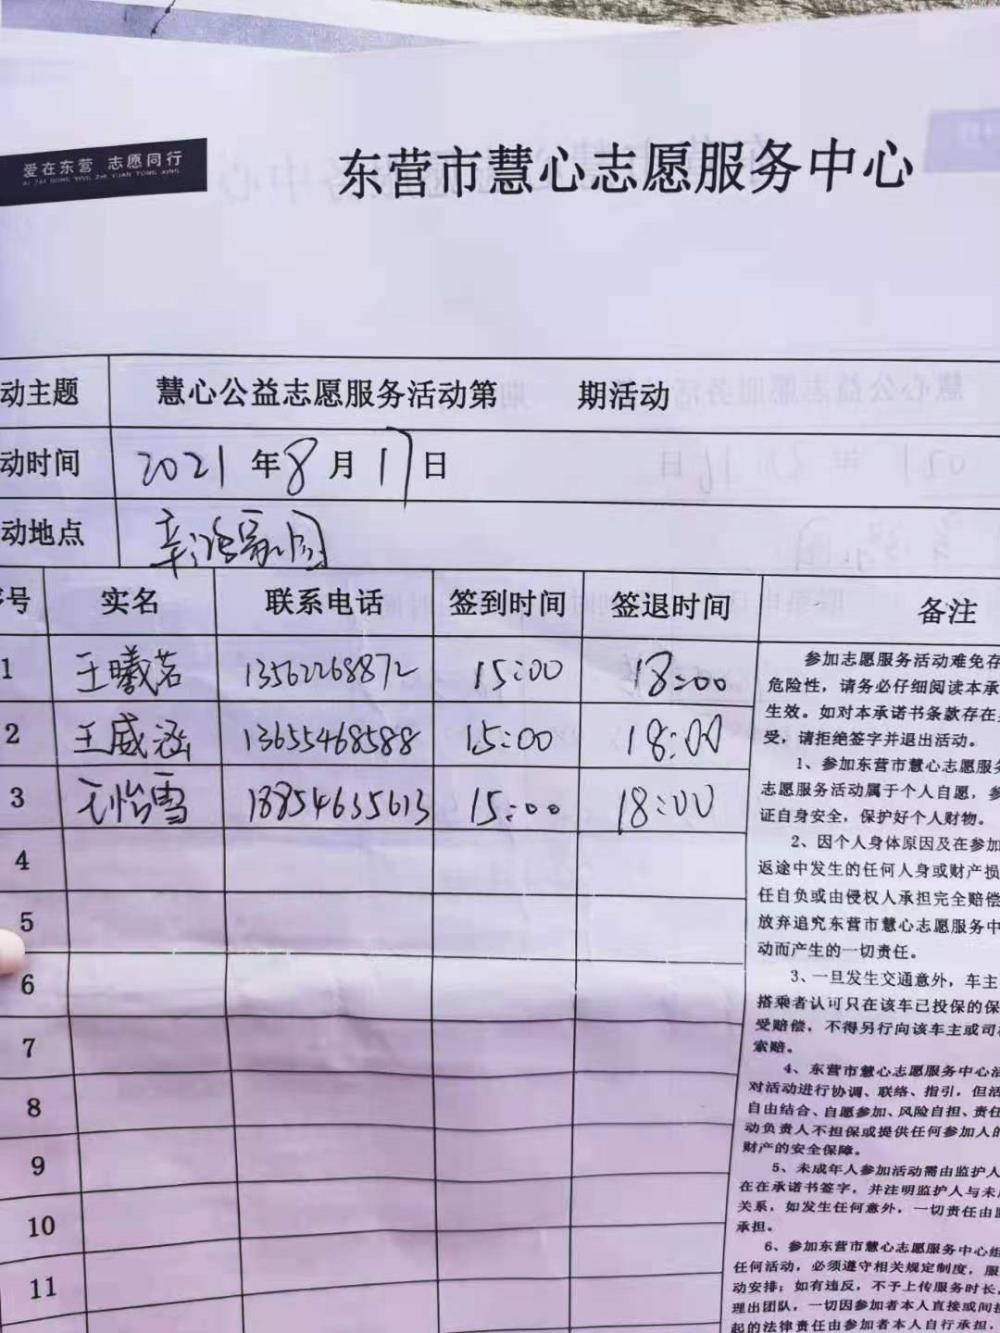 爱在东营 志愿同行
AI ZAI DONG YING ZHI YUAN TONG XING
东营市慧心志愿服务中心
动主题 慧心公益志愿服务活动第 期活动
动时间 2021年8月17日
动地点 家园
序号 实名 联系电话 签到时间 签退时间 备注
1 王曦若 13562268872 15:00 18:00
2 王威涵 13655468588 15:00 18:00
3 王怡雪 18854635613 15:00 18:00
4
5
6
7
8
9
10
11
参加志愿服务活动难免存
危险性，请务必仔细阅读本承
生效。如对本承诺书条款存在
受，请拒绝签字并退出活动。
1、参加东营市慧心志愿服务
志愿服务活动属于个人自愿，参
证自身安全，保护好个人财物。
2、因个人身体原因及在参加
返途中发生的任何人身或财产损
任自负或由侵权人承担完全赔偿
放弃追究东营市慧心志愿服务中
动而产生的一切责任。
3、一旦发生交通意外，车主
搭乘者认可只在该车已投保的保
受赔偿，不得另行向该车主或司
索赔。
4、东营市慧心志愿服务中心活
对活动进行协调、联络、指引，但活
自由结合、自愿参加、风险自担、责任
动负责人不担保或提供任何参加人的
财产的安全保障。
5、未成年人参加活动需由监护人
在在承诺书签字，并注明监护人与未
关系，如发生任何意外，一切责任由
承担。
6、参加东营市慧心志愿服务中心组
任何活动，必须遵守相关规定制度，服
动安排；如有违反，不予上传服务时长，
理出团队，一切因参加者本人直接或间接
起的法律责任由参加者本人自行承担，